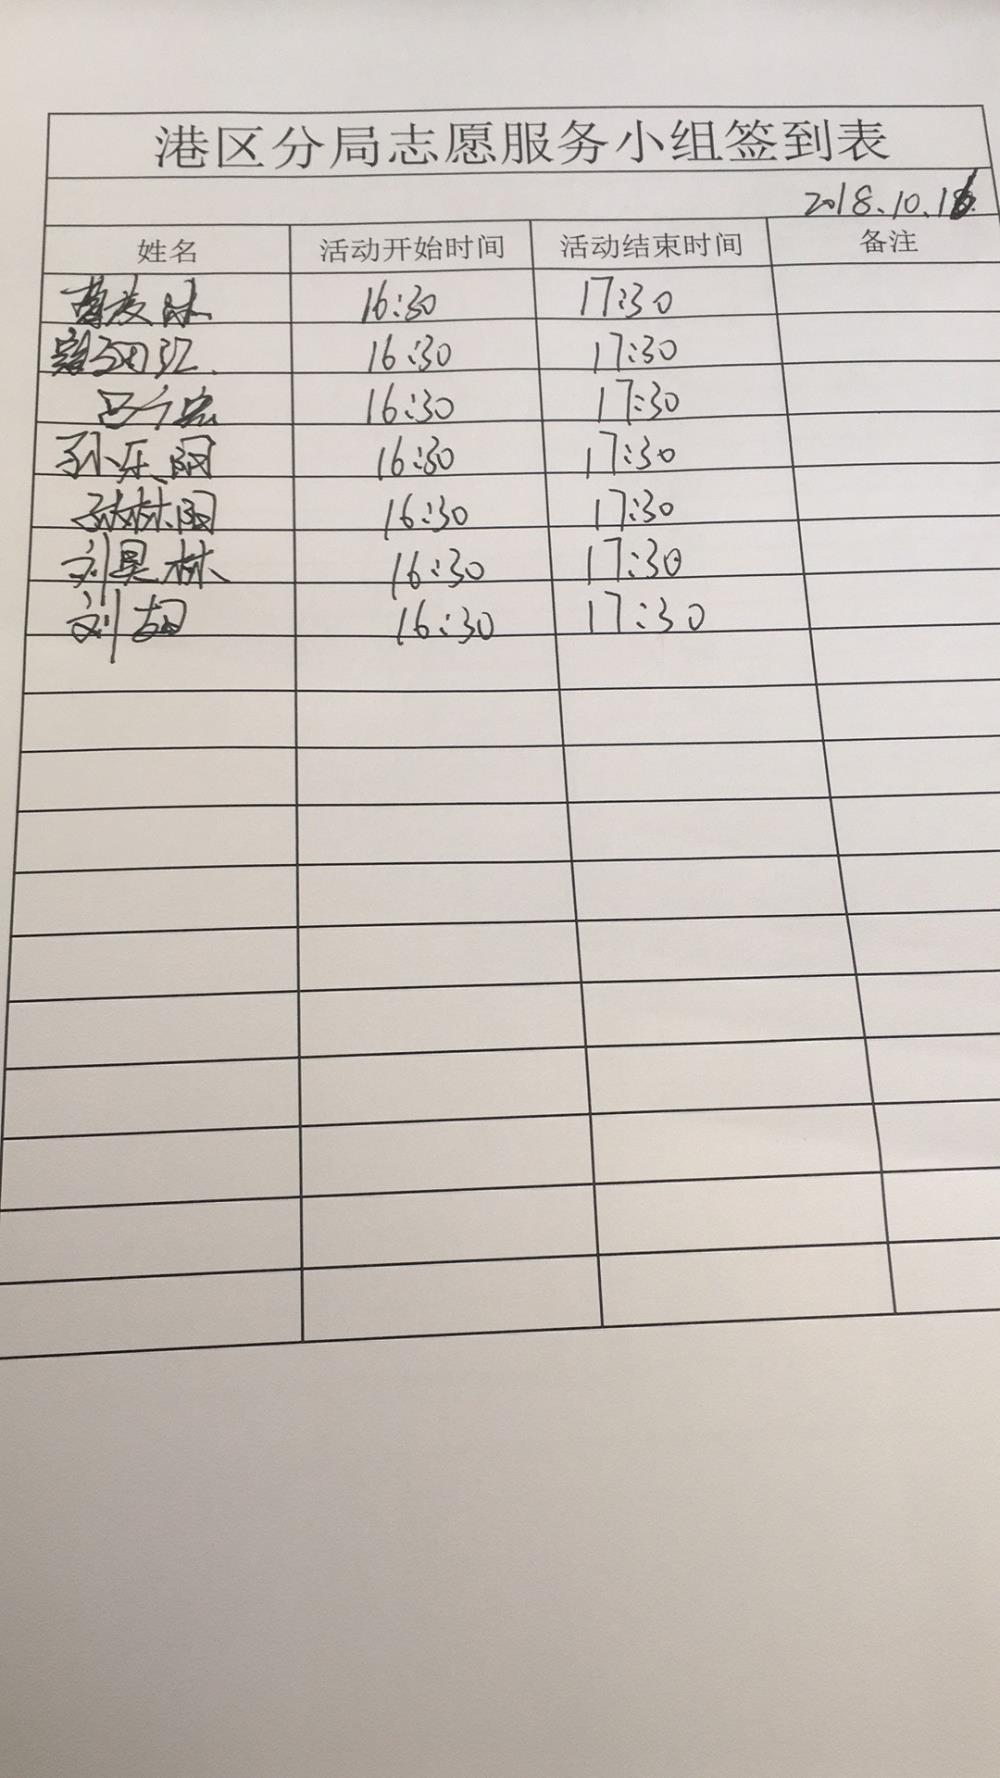 港区分局志愿服务小组签到表
2018.10.16
姓名 活动开始时间 活动结束时间 备注
16:30 17:30
16:30 17:30
16:30 17:30
孙乐阳 16:30 17:30
孙林阳 16:30 17:30
刘昊林 16:30 17:30
刘 16:30 17:30